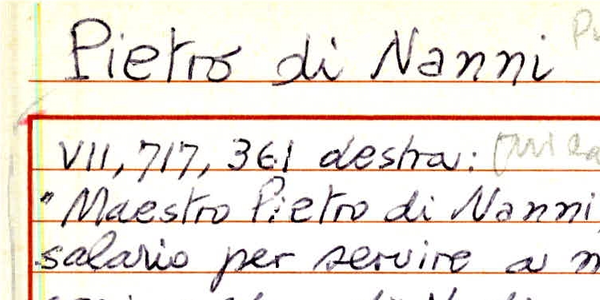 Pietro di Nanni
VII, 717, 361 destra:
"Maestro Pietro di Nanni,
salario per servire a